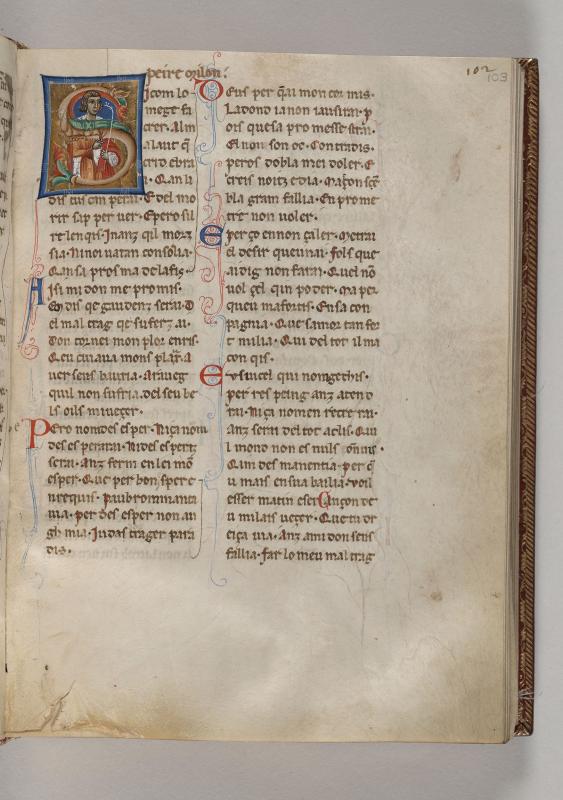 102
103
peire milon.
icom lo
mege fa
crer. Al m
alaut q̃
crid e bra
Qan li
dis cus cim perai. E del mo
rir sap per uer. E pero sil
re len qis. Inanz qil morz
sia. Ni noi uatan consolia.
Qansa pros ma de la fis.
Aisi mi don me promis.
Em dis qe gaudenz serai. D
el mal trag qe sufers ai.
don cornei mon plor en ris.
Qeu cuiaua mons plair. A
uer seus bauria. Ara ueg
qu il non sufria. del seu be
ls oils mi ueger.
Pero nom des esper. Ni ça nom
des esperarai. Ni des esperz
serai. Anz ferm en lei mõ
esper. Que per bon sper e
u requis. paubrom manta
uia. per des esper non au
gh mia. Iudas trager para
dis.
Deus per q̃ ai mon cor mis.
La dond ia non iausirai. p
ois quesa pro messe frai.
El non son oc. Contradis.
per os dobla mei doler. E
creis noitz e dia. Ma çon sẽ
bla gram fallia. En pro me
tre non uoler.
E per ço en non çaler. Metrai
el desir queu n ai. fols que
ai dig non farai. Quel nõ
uol gel qin poder. ma per
queu ma fortis. En sa con
pagnia. Que samor tan for
t milia. Qui del tot il ma
con qis.
Eu suicel qui nom gethis.
per res peing anz atend
rai. Ni ça nomen recrerai.
anz serai del tot aclis. Qui
l mond non es nuls omnis.
Qim des manentia. per q̃
u mais en sua bailia. Voil
esser matin e ser Cançon de
u milais ueger. Que tu dr
eiça uia. Anz am i don seus
fallia. far lo meu mal trag